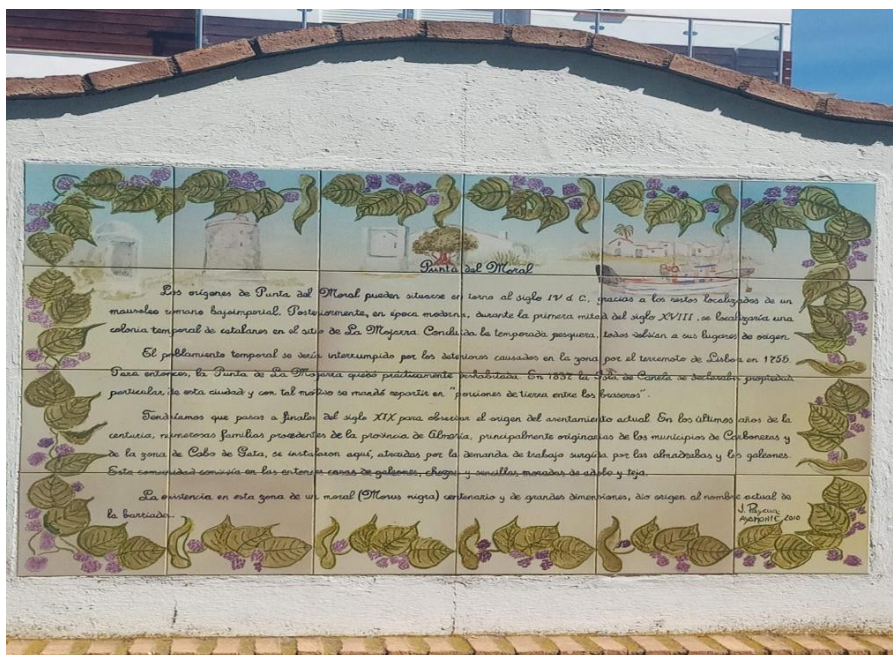 Punta del Moral
Los orígenes de Punta del Moral pueden situarse en torno al siglo IV d. C., gracias a los restos localizados de un
mausoleo romano bajoimperial. Posteriormente, en época moderna, durante la primera mitad del siglo XVIII, se localizaría una
colonia temporal de catalanes en el sitio de La Mojarra. Concluida la temporada pesquera, todos volvían a sus lugares de origen.
El poblamiento temporal se vería interrumpido por los deterioros causados en la zona por el terremoto de Lisboa en 1755.
Para entonces, la Punta de La Mojarra quedó prácticamente deshabitada. En 1837 la Isla de Canela se declaraba propiedad
particular, de esta ciudad y con tal motivo se mandó repartir en "porciones de tierra entre los braseros".
Tendríamos que pasar a finales del siglo XIX para observar el origen del asentamiento actual. En los últimos años de la
centuria, numerosas familias procedentes de la provincia de Almería, principalmente originarias de los municipios de Carboneras y
de la zona de Cabo de Gata, se instalaron aquí, atraídas por la demanda de trabajo surgida por las almadrabas y los galeones.
Esta comunidad convivía en las entonces casas de galeones, chozas y sencillas moradas de adobe y teja.
La existencia en esta zona de un moral (Morus nigra) centenario y de grandes dimensiones, dio origen al nombre actual de
la barriada.
AYAMONTE, 2010